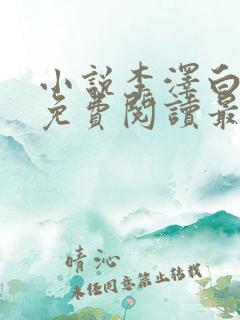 小說李澤白
免費閱讀最
晴沁
未经同意禁止转载